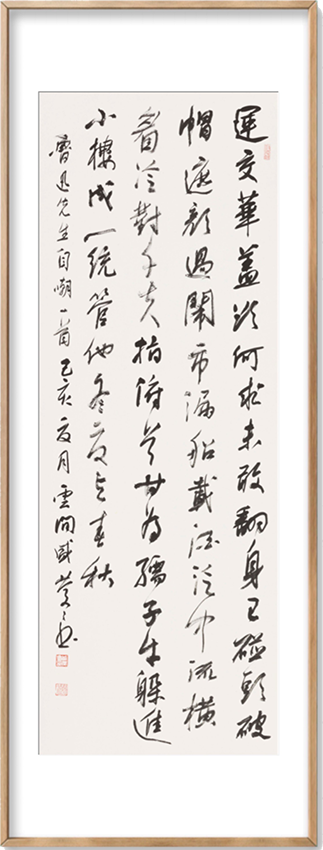 運交華蓋欲何求未敢翻身已碰頭破
帽遮顏過鬧市漏船載酒泛中流橫
眉冷對千夫指俯首甘為孺子牛躲進
小樓成一統管他冬夏与春秋
魯迅先生自嘲一首己亥夏月雲間盛